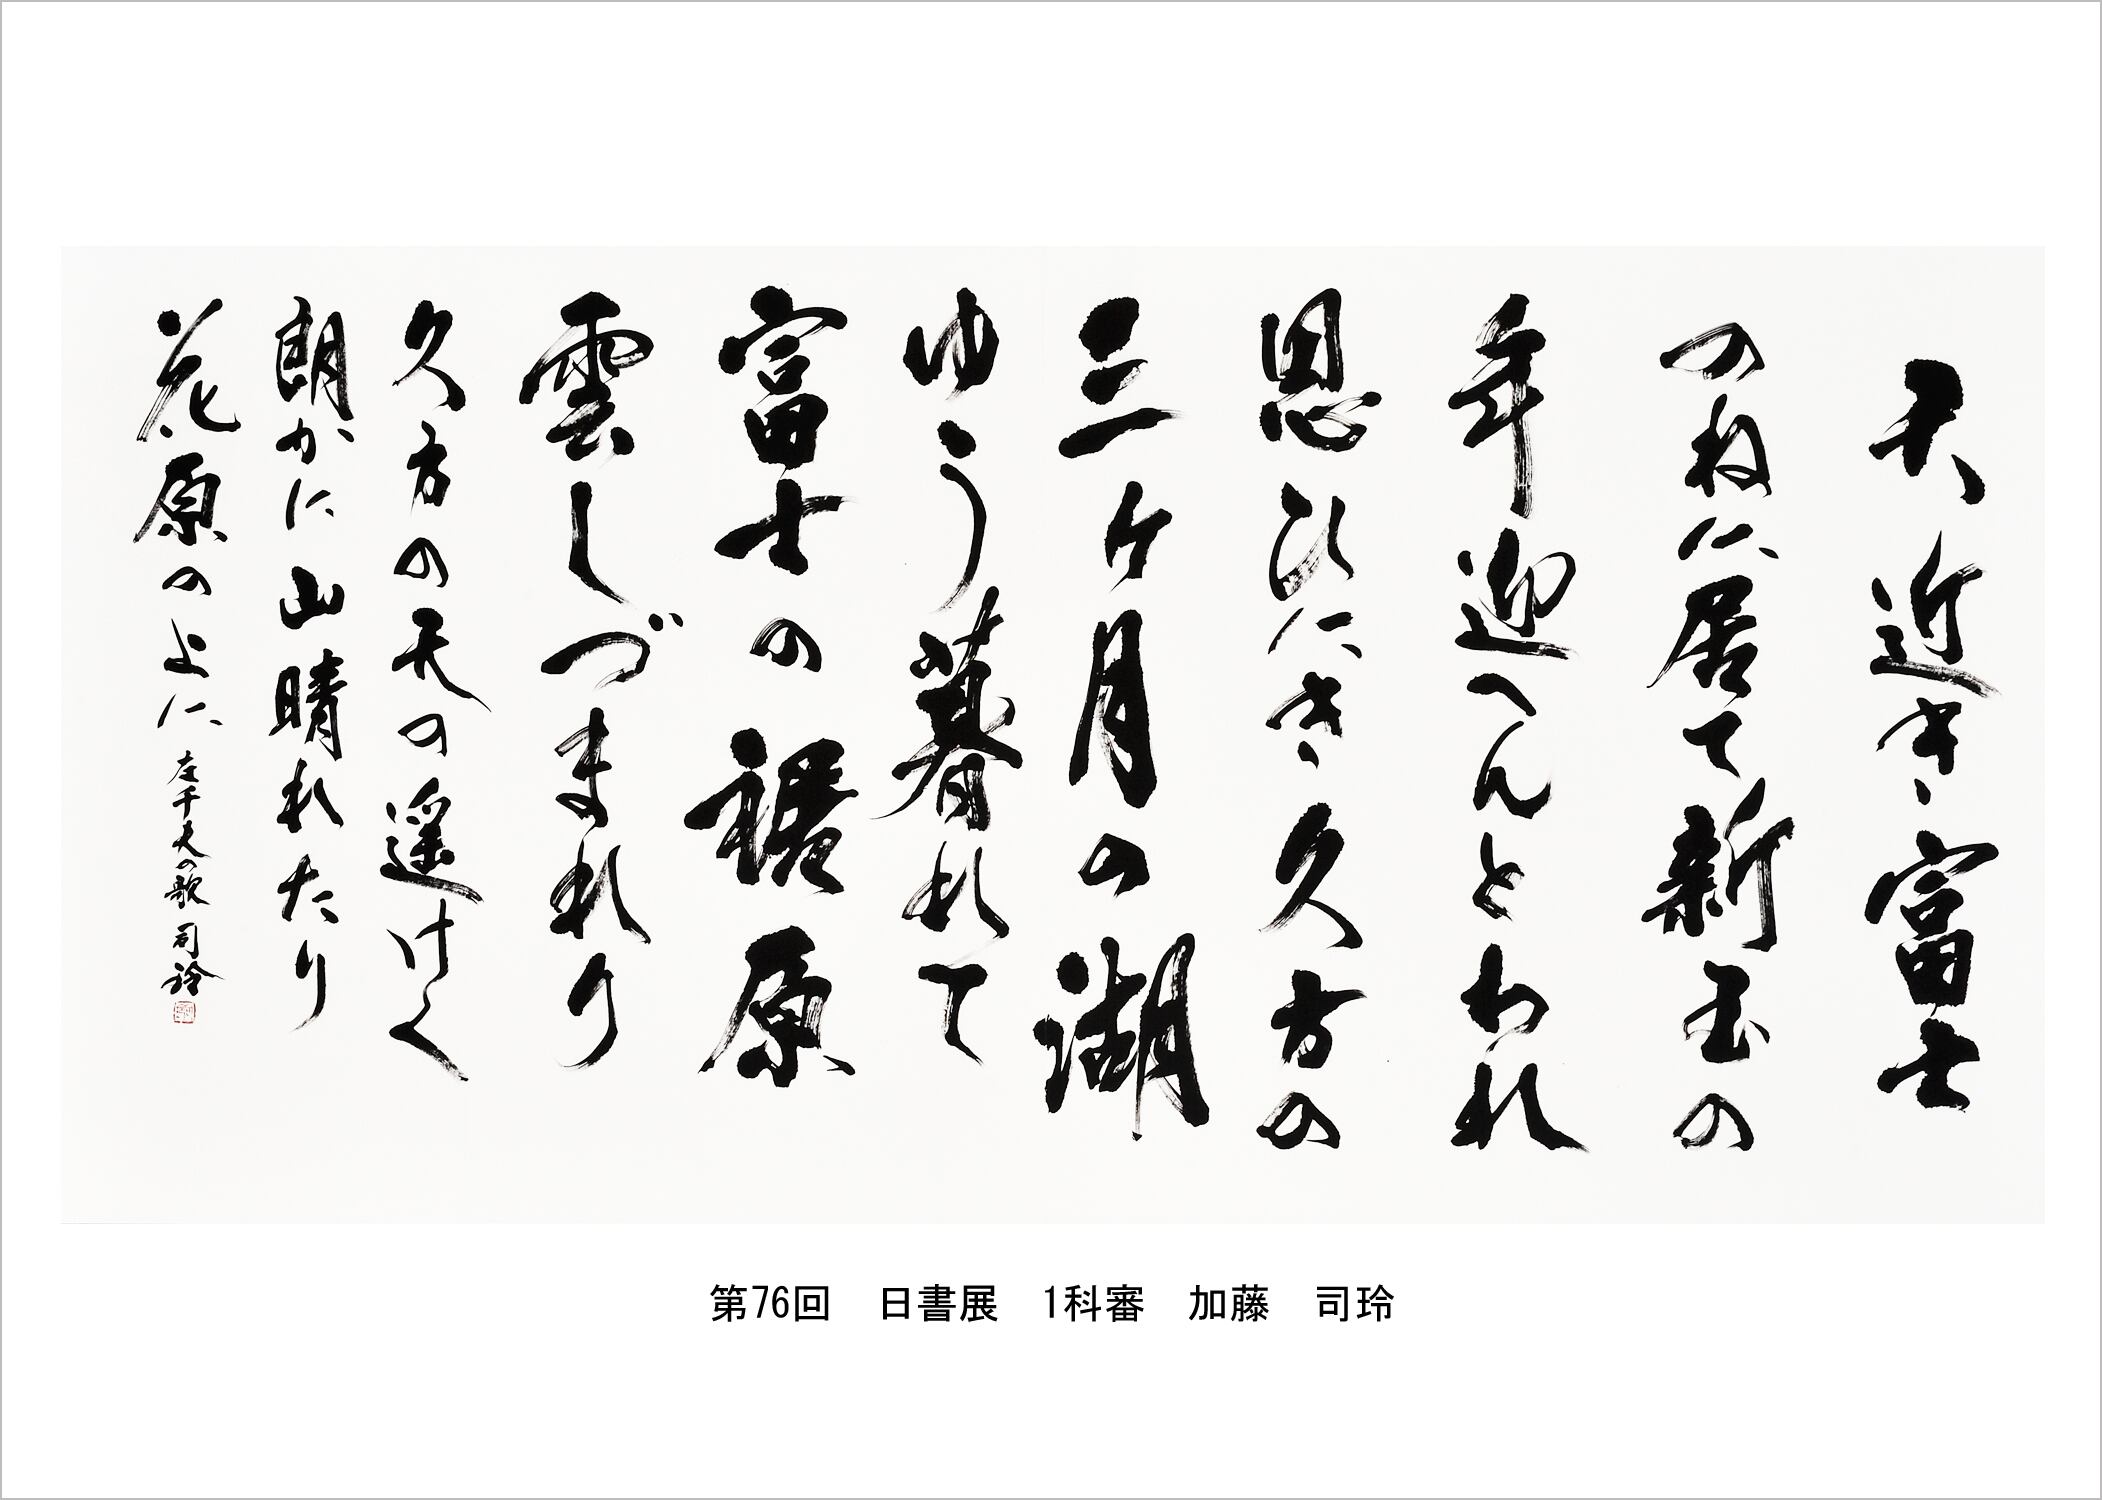 天近き富士
のねに居て新玉の
年迎へんとわれ
思ひにき久方の
三ケ月の湖
ゆう暮れて
富士の裾原
雲しづまれり
久方の天の遥けく
朗かに山晴れたり
花原の上に
左千夫の歌 司玲
第76回 日書展 1科審 加藤 司玲